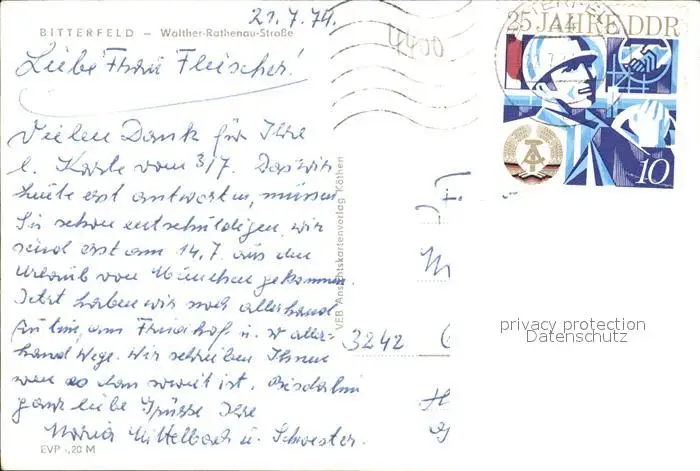 21.7.74.
BITTERFELD – Walther-Rathenau-Straße
Liebe Frau Fleischer!
Vielen Dank für Ihre
l. Karte vom 3/7. Das wir
heute erst antworten, müssen
Sie schon entschuldigen, wir
sind erst am 14.7. aus dem
Urlaub von München gekommen.
Jetzt haben wir noch allerhand
zu tun, am Friedhof u. so aller-
hand Wege. Wir schreiben Ihnen
wenn es dann soweit ist. Bis dahin
ganz liebe Grüsse Ihre
Maria Mittelbach u. Schwester.
EVP -,20 M
VEB Ansichtskartenverlag Köthen
4400
25 JAHRE DDR
10
3242
privacy protection
Datenschutz